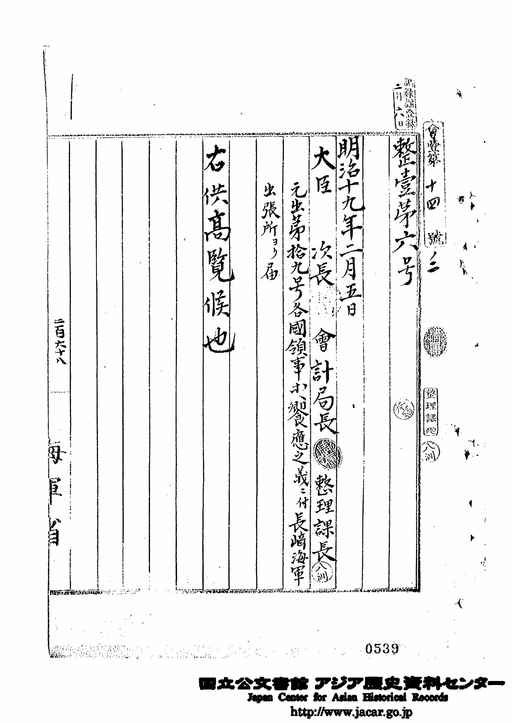 會整第十四號ノ二
整壹第六号
明治十九年二月五日
大臣 次長 會計局長 整理課長
元出第拾九号各國領事ヘ饗應之義ニ付長崎海軍
出張所ヨリ届
右供高覧候也
二百六十八
海軍省
0539
国立公文書館 アジア歴史資料センター
Japan Center for Asian Historical Records
http://www.jacar.go.jp